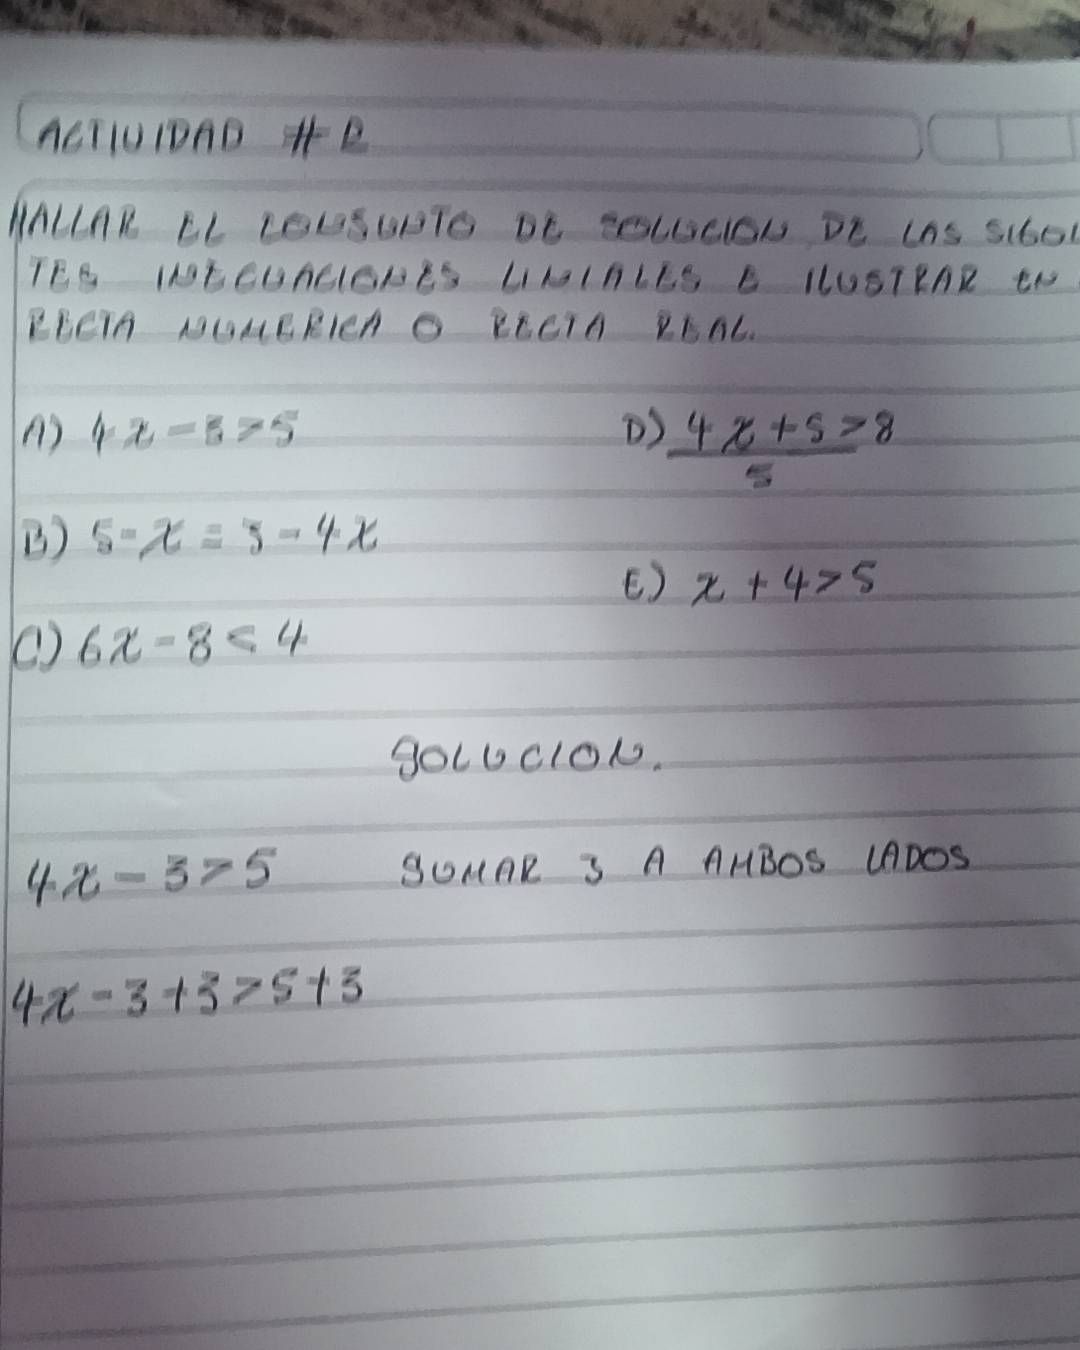 ACTIVIDAD #2
HALLAR EL CONJUNTO DE SOLUCION DE LAS
TES INECUACIONES LINIALES E ILUSTRAR EN
RECTA NUMERICA O RECTA REAL.
A) 4x-3>5
B) 5-x=3-4x
C) 6x-8<4
D) 4x+5>8
5
E) x+4>5
SOLUCION.
4x-3>5 SUMAR 3 A AMBOS LADOS
4x-3+3>5+3